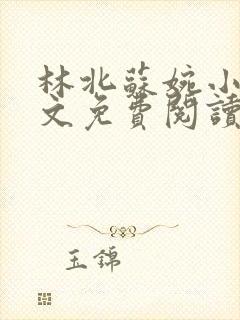 林北蘇婉小
文免費閱讀
玉錦